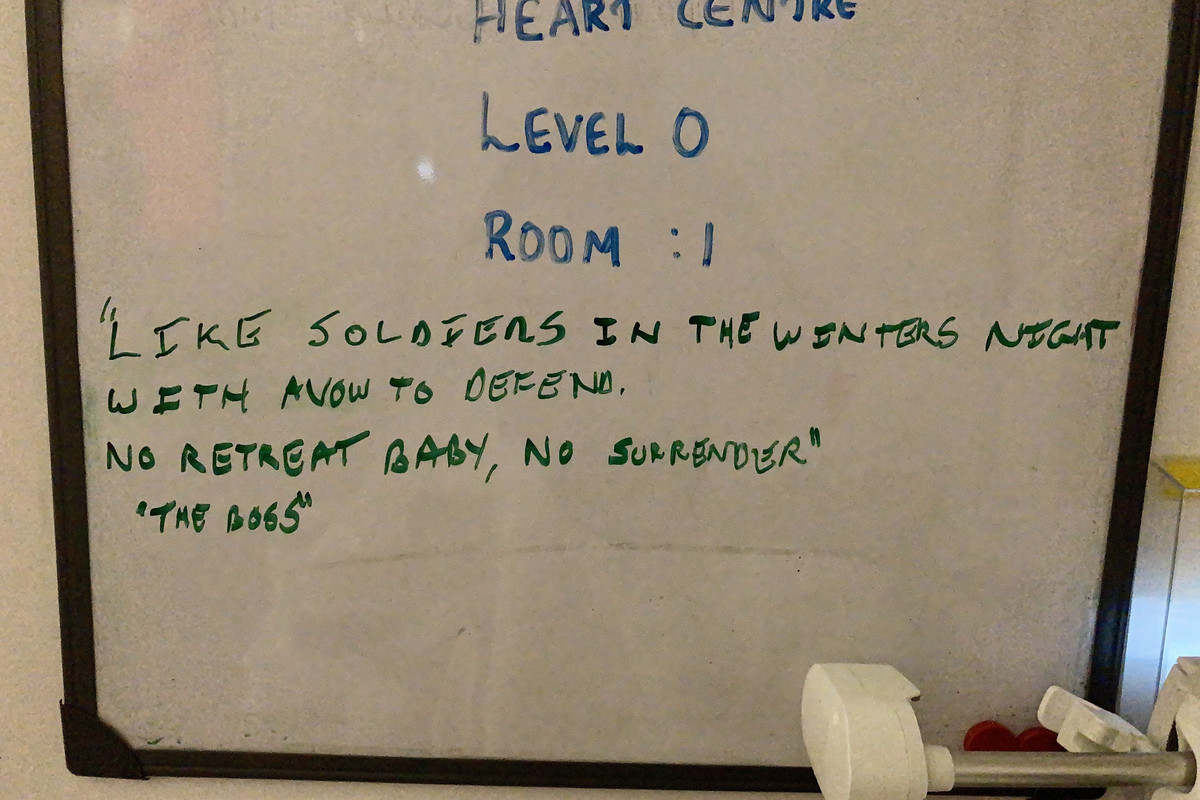 HEART CENTRE
LEVEL 0
ROOM :1
"LIKE SOLDIERS IN THE WINTERS NIGHT
WITH AVOW TO DEFEND.
NO RETREAT BABY, NO SURRENDER"
"THE BOSS"